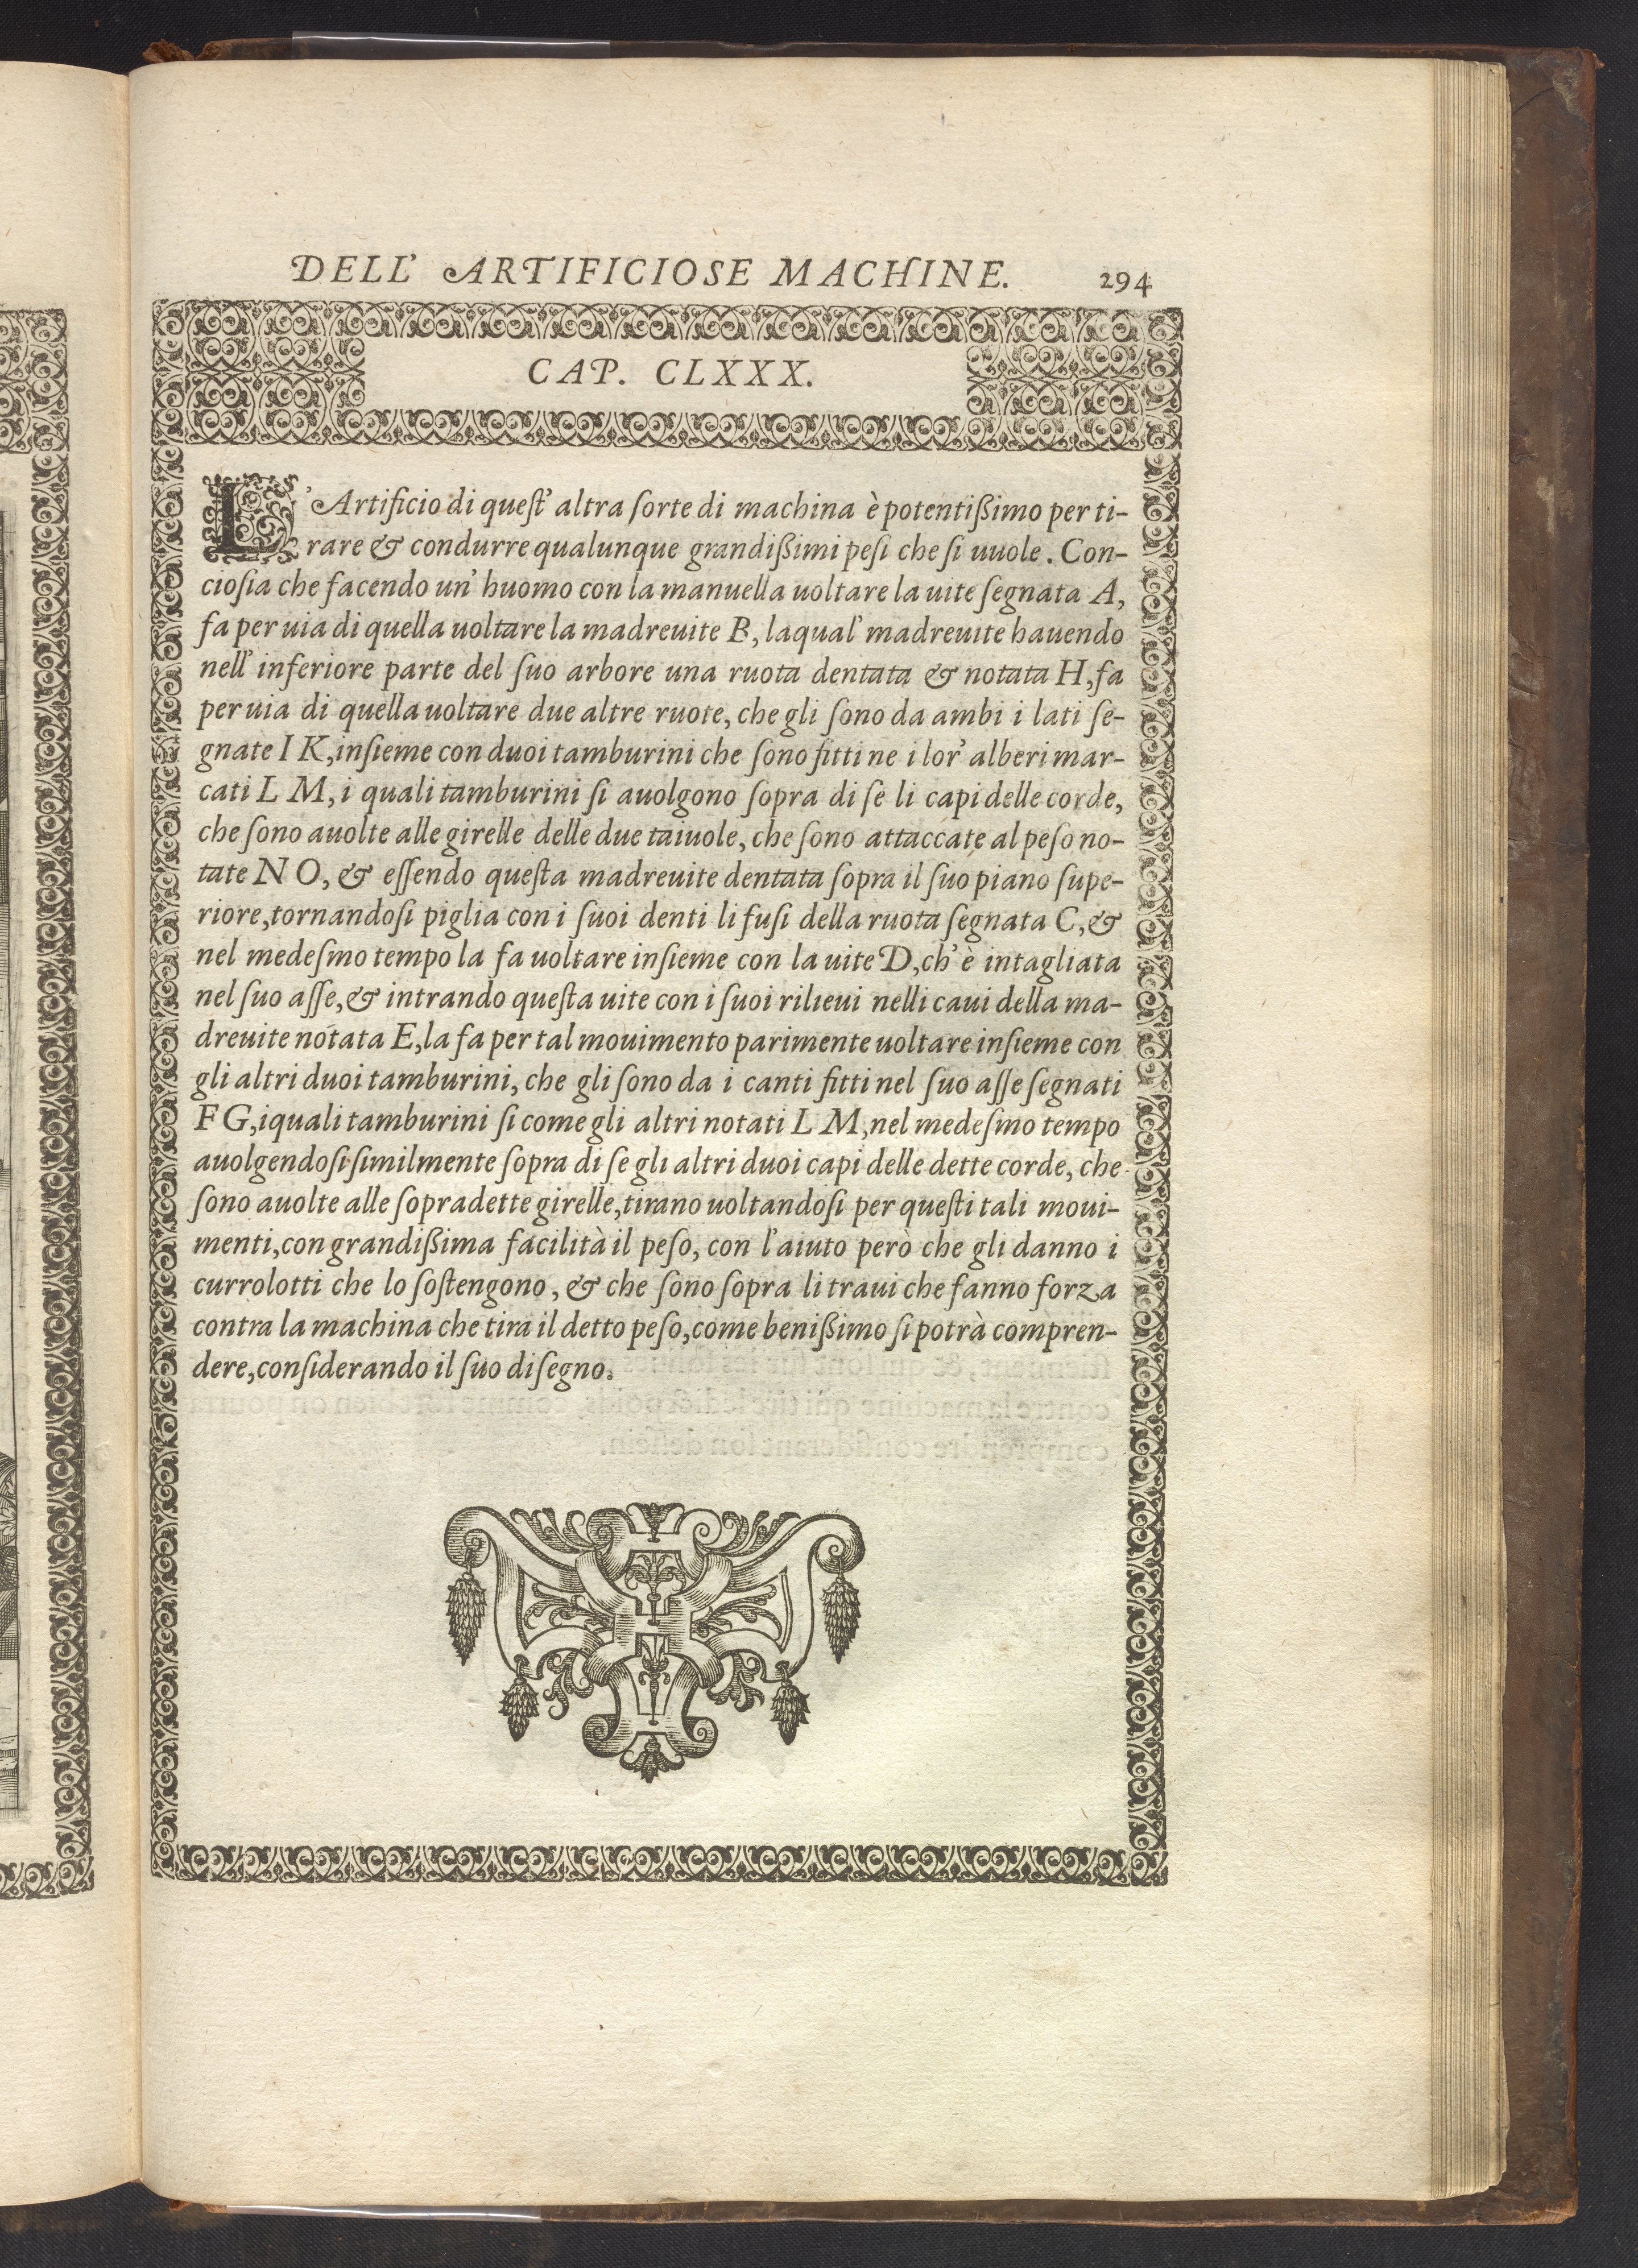 DELL' ARTIFICIOSE MACHINE. 294
CAP. CLXXX.
L'Artificio di quest' altra sorte di machina è potentißimo per ti-
rare & condurre qualunque grandißimi pesi che si uuole. Con-
ciosia che facendo un' huomo con la manuella uoltare la uite segnata A,
fa per uia di quella uoltare la madreuite B, laqual' madreuite hauendo
nell' inferiore parte del suo arbore una ruota dentata & notata H, fa
per uia di quella uoltare due altre ruote, che gli sono da ambi i lati se-
gnate I K, insieme con duoi tamburini che sono fitti ne i lor' alberi mar-
cati L M, i quali tamburini si auolgono sopra di se li capi delle corde,
che sono auolte alle girelle delle due taiuole, che sono attaccate al peso no-
tate N O, & essendo questa madreuite dentata sopra il suo piano supe-
riore, tornandosi piglia con i suoi denti li fusi della ruota segnata C, &
nel medesmo tempo la fa uoltare insieme con la uite D, ch' è intagliata
nel suo asse, & intrando questa uite con i suoi rilieui nelli caui della ma-
dreuite notata E, la fa per tal mouimento parimente uoltare insieme con
gli altri duoi tamburini, che gli sono da i canti fitti nel suo asse segnati
F G, iquali tamburini si come gli altri notati L M, nel medesmo tempo
auolgendosi similmente sopra di se gli altri duoi capi delle dette corde, che
sono auolte alle sopradette girelle, tirano uoltandosi per questi tali moui-
menti, con grandißima facilità il peso, con l'aiuto però che gli danno i
currolotti che lo sostengono, & che sono sopra li traui che fanno forza
contra la machina che tira il detto peso, come benißimo si potrà compren-
dere, considerando il suo disegno.